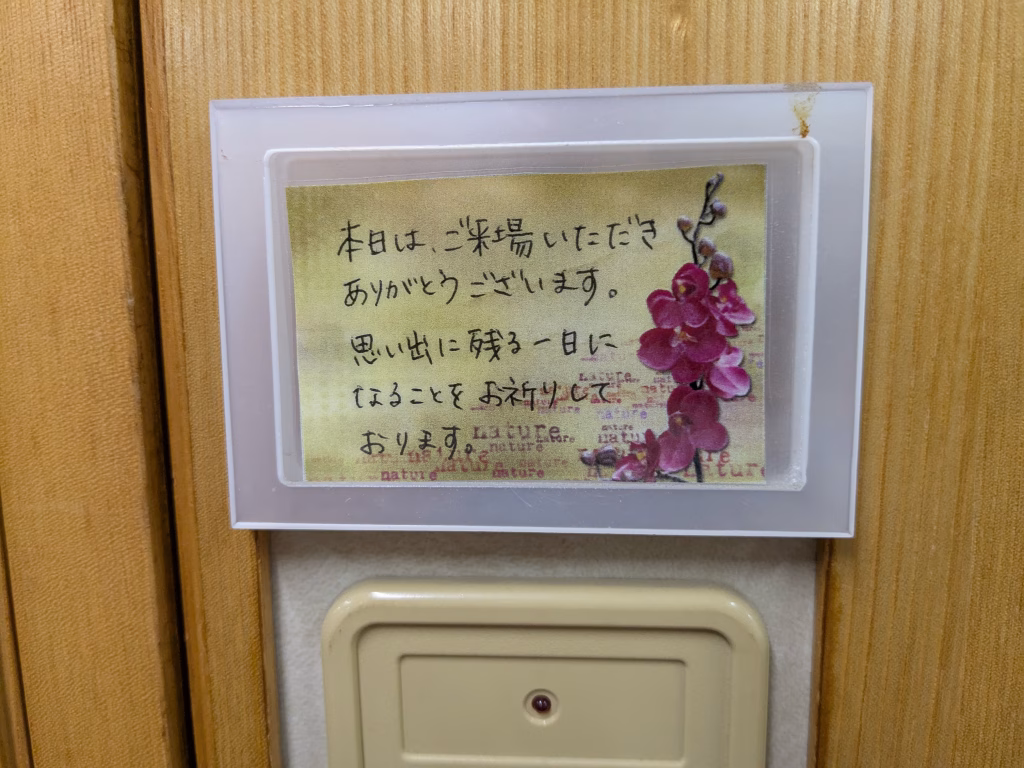 本日は、ご来場いただき
ありがとうございます。
思い出に残る一日に
なることをお祈りして
おります。
nature
nature
nature
nature
nature
nature
nature
nature
nature